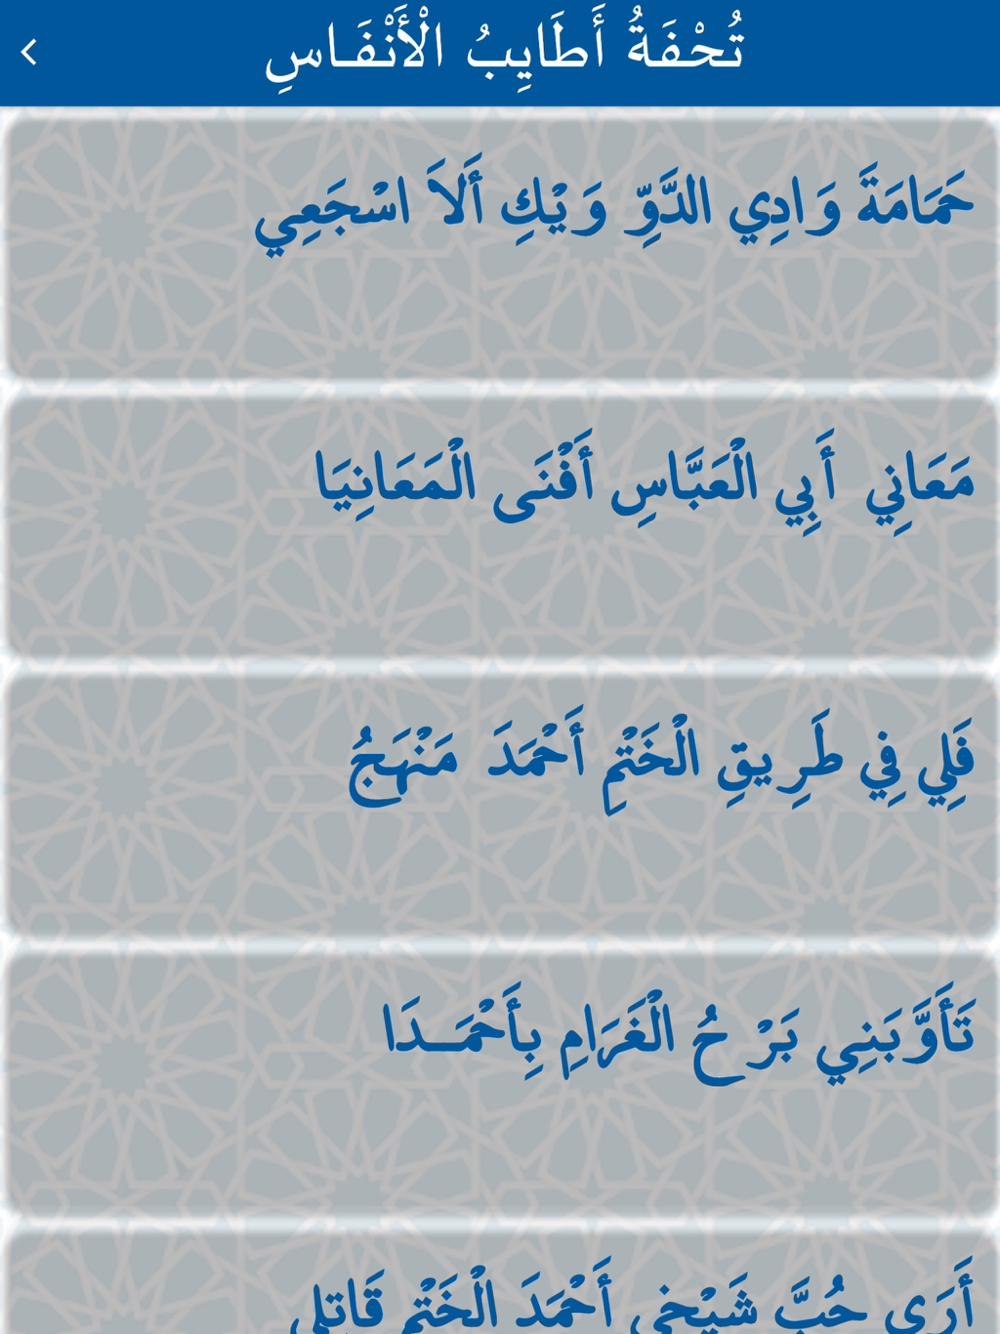 تُحْفَةُ أَطَايِبُ الْأَنْفَـاسِ
حَمَامَةَ وَادِي الدَّوِّ وَيْكِ أَلاَ اسْجَعِي
مَعَانِي أَبِي الْعَبَّاسِ أَفْنَى الْمَعَانِيَا
فَلِي فِي طَرِيقِ الْخَتْمِ أَحْمَدَ مَنْهَجُ
تَأَوَّبَنِي بَرْحُ الْغَرَامِ بِأَحْمَـدَا
أَرَى حُبَّ شَيْخِي أَحْمَدَ الْخَتْمِ قَاتِلِي